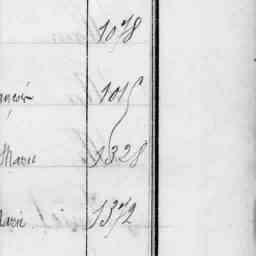 1078
1015
Marie 1328
Marie 1372